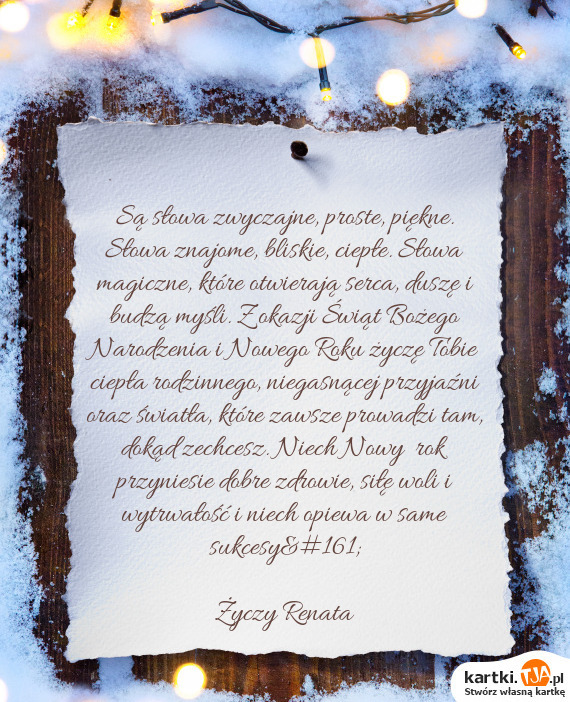 Są słowa zwyczajne, proste, piękne.
Słowa znajome, bliskie, ciepłe. Słowa
magiczne, które otwierają serca, duszę i
budzą myśli. Z okazji Świąt Bożego
Narodzenia i Nowego Roku życzę Tobie
ciepła rodzinnego, niegasnącej przyjaźni
oraz światła, które zawsze prowadzi tam,
dokąd zechcesz. Niech Nowy rok
przyniesie dobre zdrowie, siłę woli i
wytrwałość i niech opiewa w same
sukcesy&#161;
Życzy Renata
kartki.TJA.pl
Stwórz własną kartkę